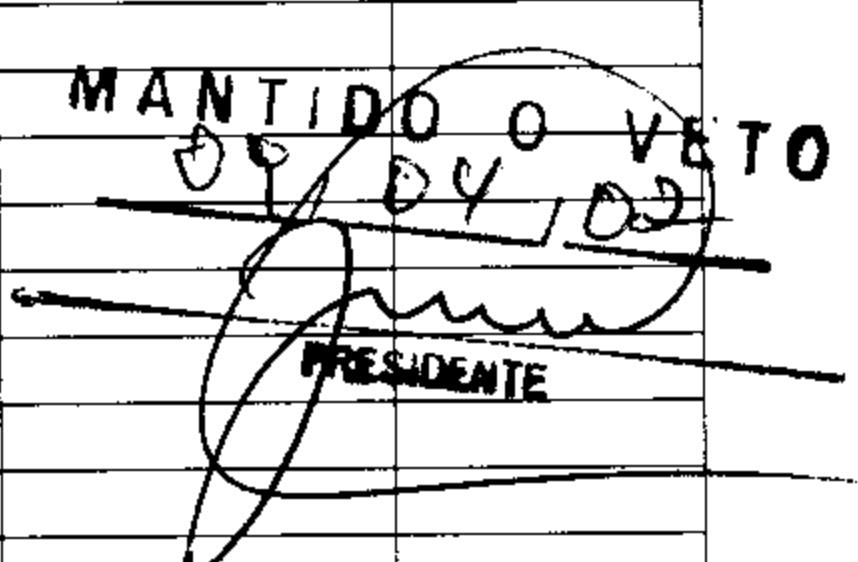 MANTIDO O VETO
09 04 / 02
PRESIDENTE